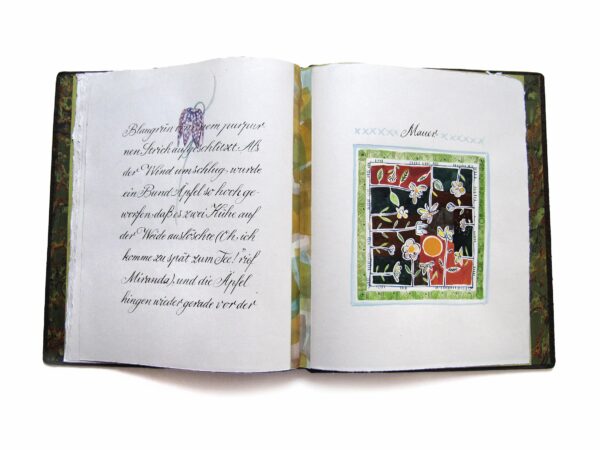 Blaugrün von einem purpur
nen Strich aufgeschlitzt. Als
der Wind umschlug, wurde
ein Bund Äpfel so hoch ge-
worfen daß es zwei Kühe auf
der Weide auslöschte (Oh, ich
komme zu spät zum Tee! rief
Miranda), und die Äpfel
hingen wieder gerade vor der
Mauer.